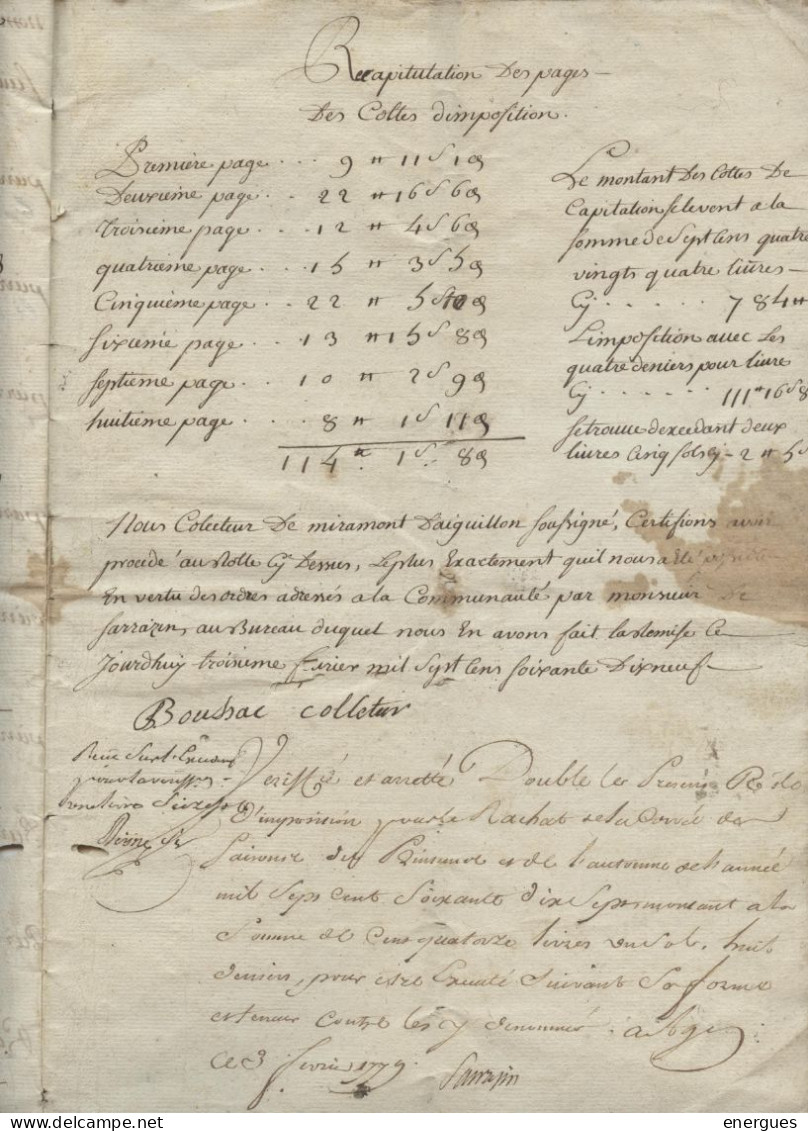 Recapitulation Des pages
Des Cottes dimposition.
Premiere page . . . 9 ₶ 11 s 1 d
Deuxieme page . . . 22 ₶ 16 s 6 d
troisieme page . . . 12 ₶ 4 s 6 d
quatrieme page . . . 15 ₶ 3 s 5 d
Cinquieme page . . . 22 ₶ 5 s 10 d
Sixieme page . . . 13 ₶ 15 s 8 d
septieme page . . . 10 ₶ 2 s 9 d
huitieme page . . . 8 ₶ 1 s 11 d
114 ₶ 1 s 8 d
Le montant Des Cottes De
Capitation selevent a la
somme de Sept Cens quatre
vingts quatre livres -
Cy . . . . . 784 ₶
Limposition avec Les
quatre deniers pour livre
Cy . . . . . 111 ₶ 16 s 8
se trouve dexcedant deux
livres Cinq sols cy - 2 ₶ 5 s
Nous Colecteur De miramont Daiguillon soussigné, Certifions avoir
procedé au Rolle Cy Dessus, Le plus Exactement quil nous a Eté
En vertu des ordres adressés a la Communauté par monsieur De
Sarrazin, au Bureau duquel nous En avons fait la Remise Ce
Jourdhuy troisieme fevrier mil Sept Cens Soixante Dixneuf
Boussac Colleteur
Veriffié et arretté Double le Presens Rolle
D'imposition pour le Rachat de la Corvée des
Saisons du Prinsems et de l'automne de l'année
mil Sept Cent Soixante dix Sept montant a la
Somme de Cent quatorze livres un Sol, huit
deniers, pour estre Executé Suivant Sa forme
et teneur Contre les cy denommés. a Agen
ce 3 fevrier 1779 Sarrazin
energues